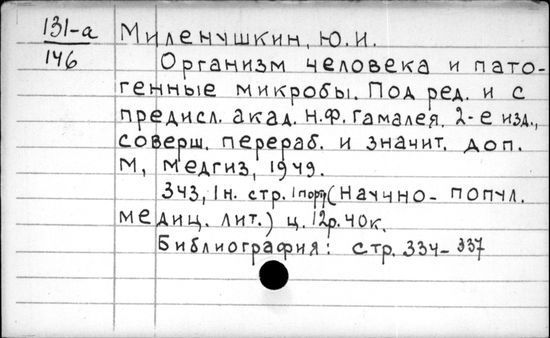 131-а
146
Миленушкин, Ю.И.
Организм человека и пато-
генные микробы. Под ред. и с
предисл. акад. Н.Ф. Гамалея. 2-е изд.,
соверш. перераб. и значит. доп.
М, Медгиз, 1949.
343, 1 н. стр. 1 портр (научно-попул.
медиц. лит.) ц. 12р. 40к.
Библиография: стр. 334-337